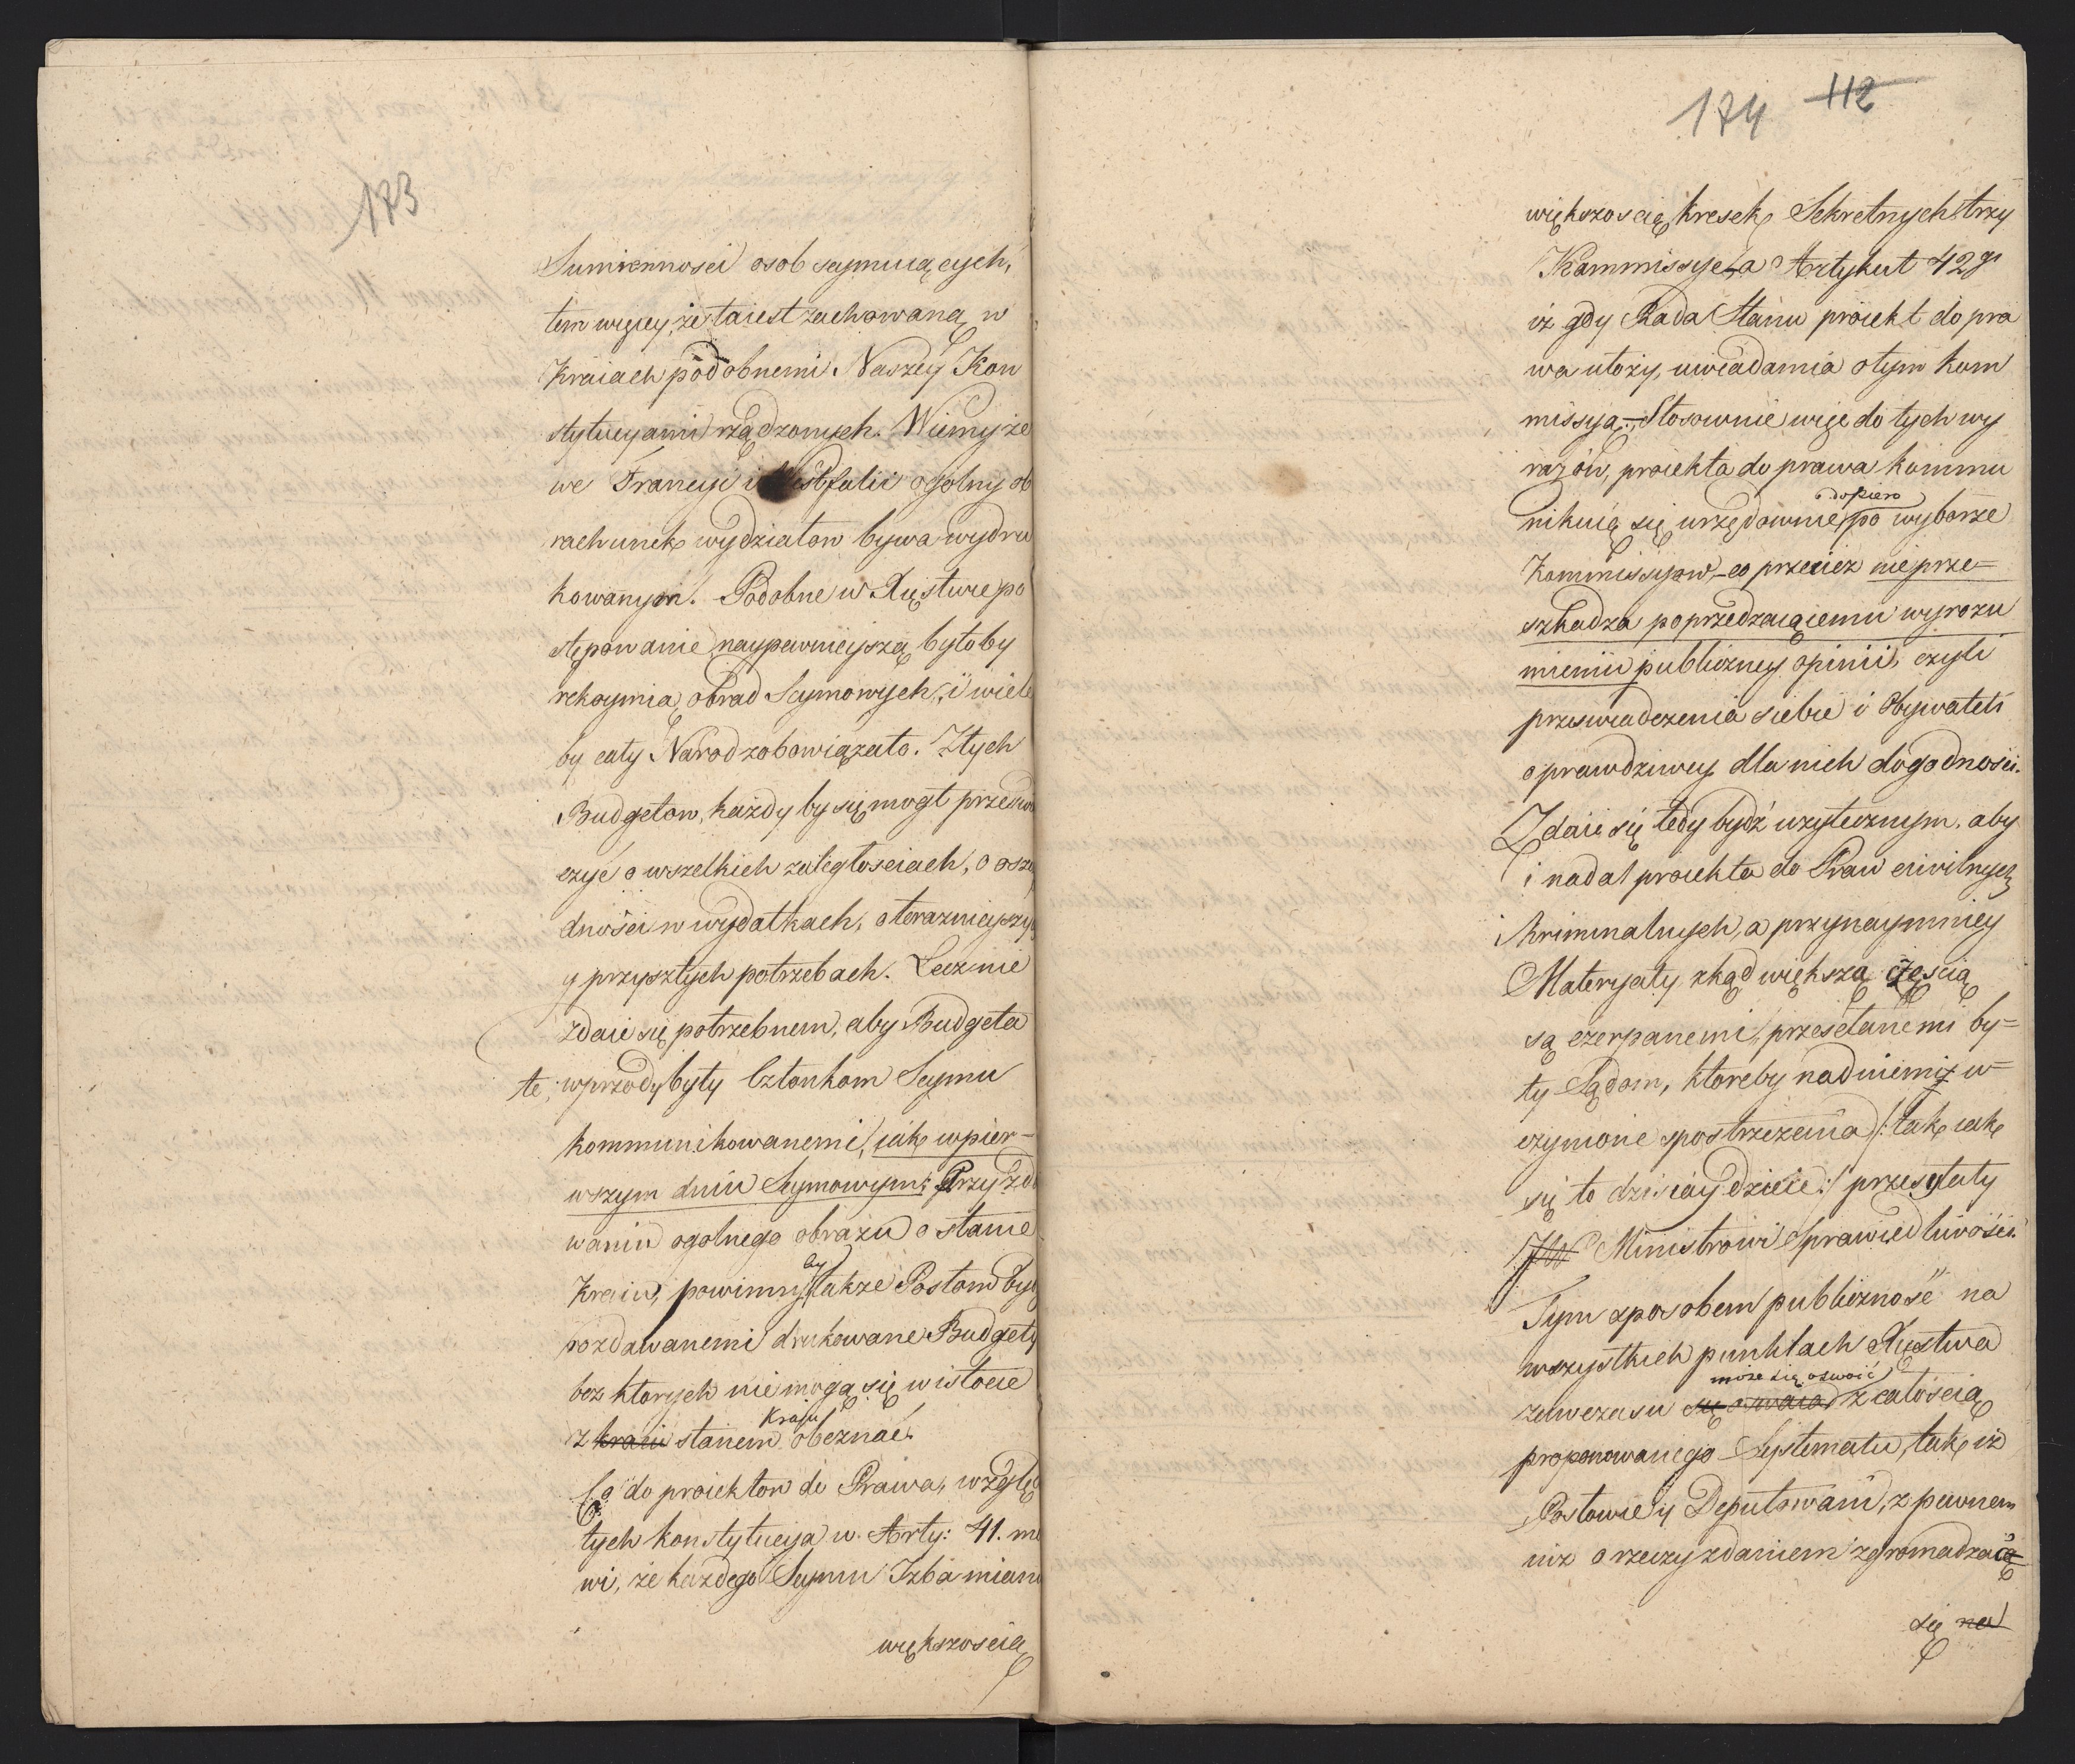 173
Sumiennosci osob seymuiących,
tem więcey, że ta iest zachowaną w
Kraiach podobnemi Naszey Kon
stytucyami rządzonych. Wiemy że
we Francyi i Westfalii ogolny ob
rachunek wydziałow bywa wydru
kowanym. Podobne w Xięstwie po
stępowanie naypewnieyszą byłoby
rekoymia, obrad Seymowych, i wiele
by cały Narod zobowiązało. Z tych
Budgetow, każdy by się mogł przeswia
czyć o wszelkich zaległosciach, o oszczę
dności w wydatkach, o teraznieyszych
y przyszłych potrzebach. Lecz nie
zdaie się potrzebnem, aby Budgeta
te, wprzody były Członkom Seymu
kommunikowanemi, iak w pier-
wszym dniu Seymowym: Przy zda
waniu ogolnego obrazu o stanie
Kraiu, powinny by także Posłom bydź
rozdawanemi drukowane Budgety
bez ktorych nie mogą się w istocie
z kraiu stanem Kraju obeznać.
Co do proiektow do Prawa, wzglę
tych konstytucya w Arty: 41. mo
wi, że każdego Seymu Izba mianu
większoscią
174 112
większoscią kresek Sekretnych trzy
Kommissye, a Artykuł 42gi
iż gdy Rada Stanu proiekt do pra
wa ułoży, uwiadamia o tym kom
missyą. Stosownie więc do tych wy
razów, proiekta do prawa kommu
nikuią się urzędownie dopiero po wyborze
Kommissyow, - co przecież nie prze=
szkadza poprzedzaiącemu wyrozu
mieniu publiczney opinii, czyli
przeswiadczenia siebie i Obywateli
o prawdziwey dla nich dogodności.
Zdaie się tedy bydź uzytecznym, aby
i nadal proiekta do Praw ciwilnych
i kriminalnych, a przynaymniey
Materyały, zkąd większą częscią
są czerpanemi, przesełanemi by=
ły Sądom, ktoreby nad niemi u=
czynione spostrzeżenia /: tak iak
się to dzisiay dzieie :/ przesyłały
JW Ministrowi Sprawiedliwości.
Tym sposobem publiczność na
wszystkich punktach Xięstwa
zawczasu się oswaia może się oswoić z całoscią
proponowanego Systematu, tak iż
Posłowie y Deputowani, z pewnem
iuż o rzeczy zdaniem zgromadzaią
się na